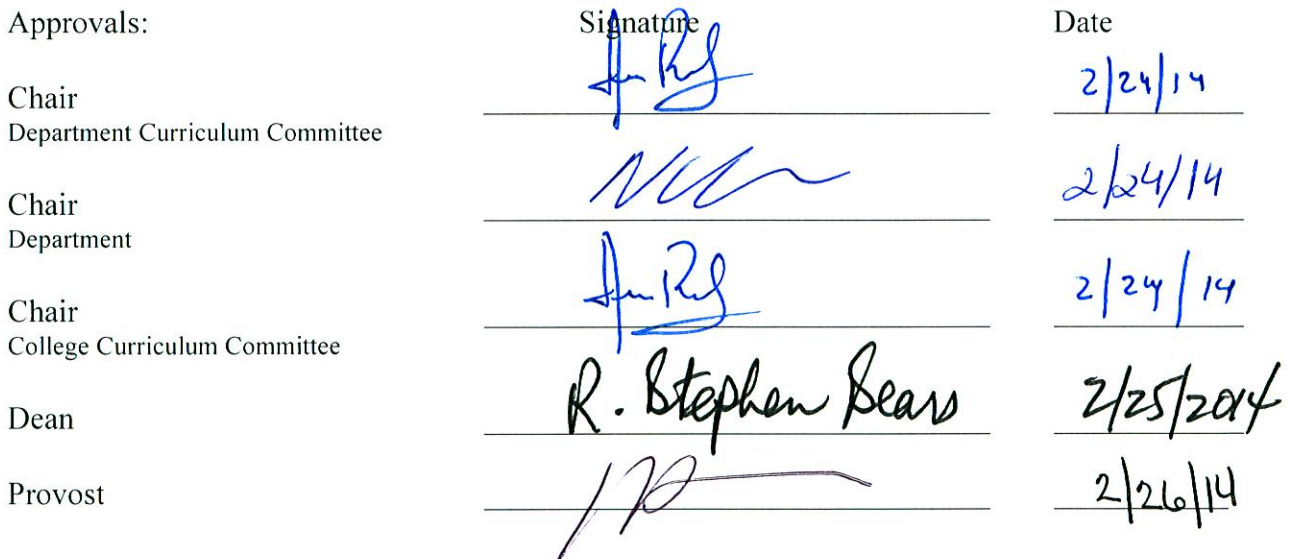 Approvals: Signature Date
Chair 2/24/14
Department Curriculum Committee
Chair 2/24/14
Department
Chair 2/24/14
College Curriculum Committee
Dean R. Stephen Sears 2/25/2014
Provost 2/26/14